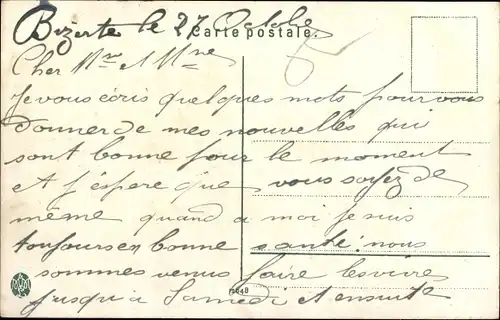 Bizerte le 27 Octobre
Carte postale.
Cher Mr et Mme
Je vous écris quelques mots pour vous
donner de mes nouvelles qui
sont bonne pour le moment
et j'éspère que vous soyez de
même quand a moi je suis
toujours en bonne santé. nous
sommes venus faire les vivre
jusqu'à Samedi et ensuite